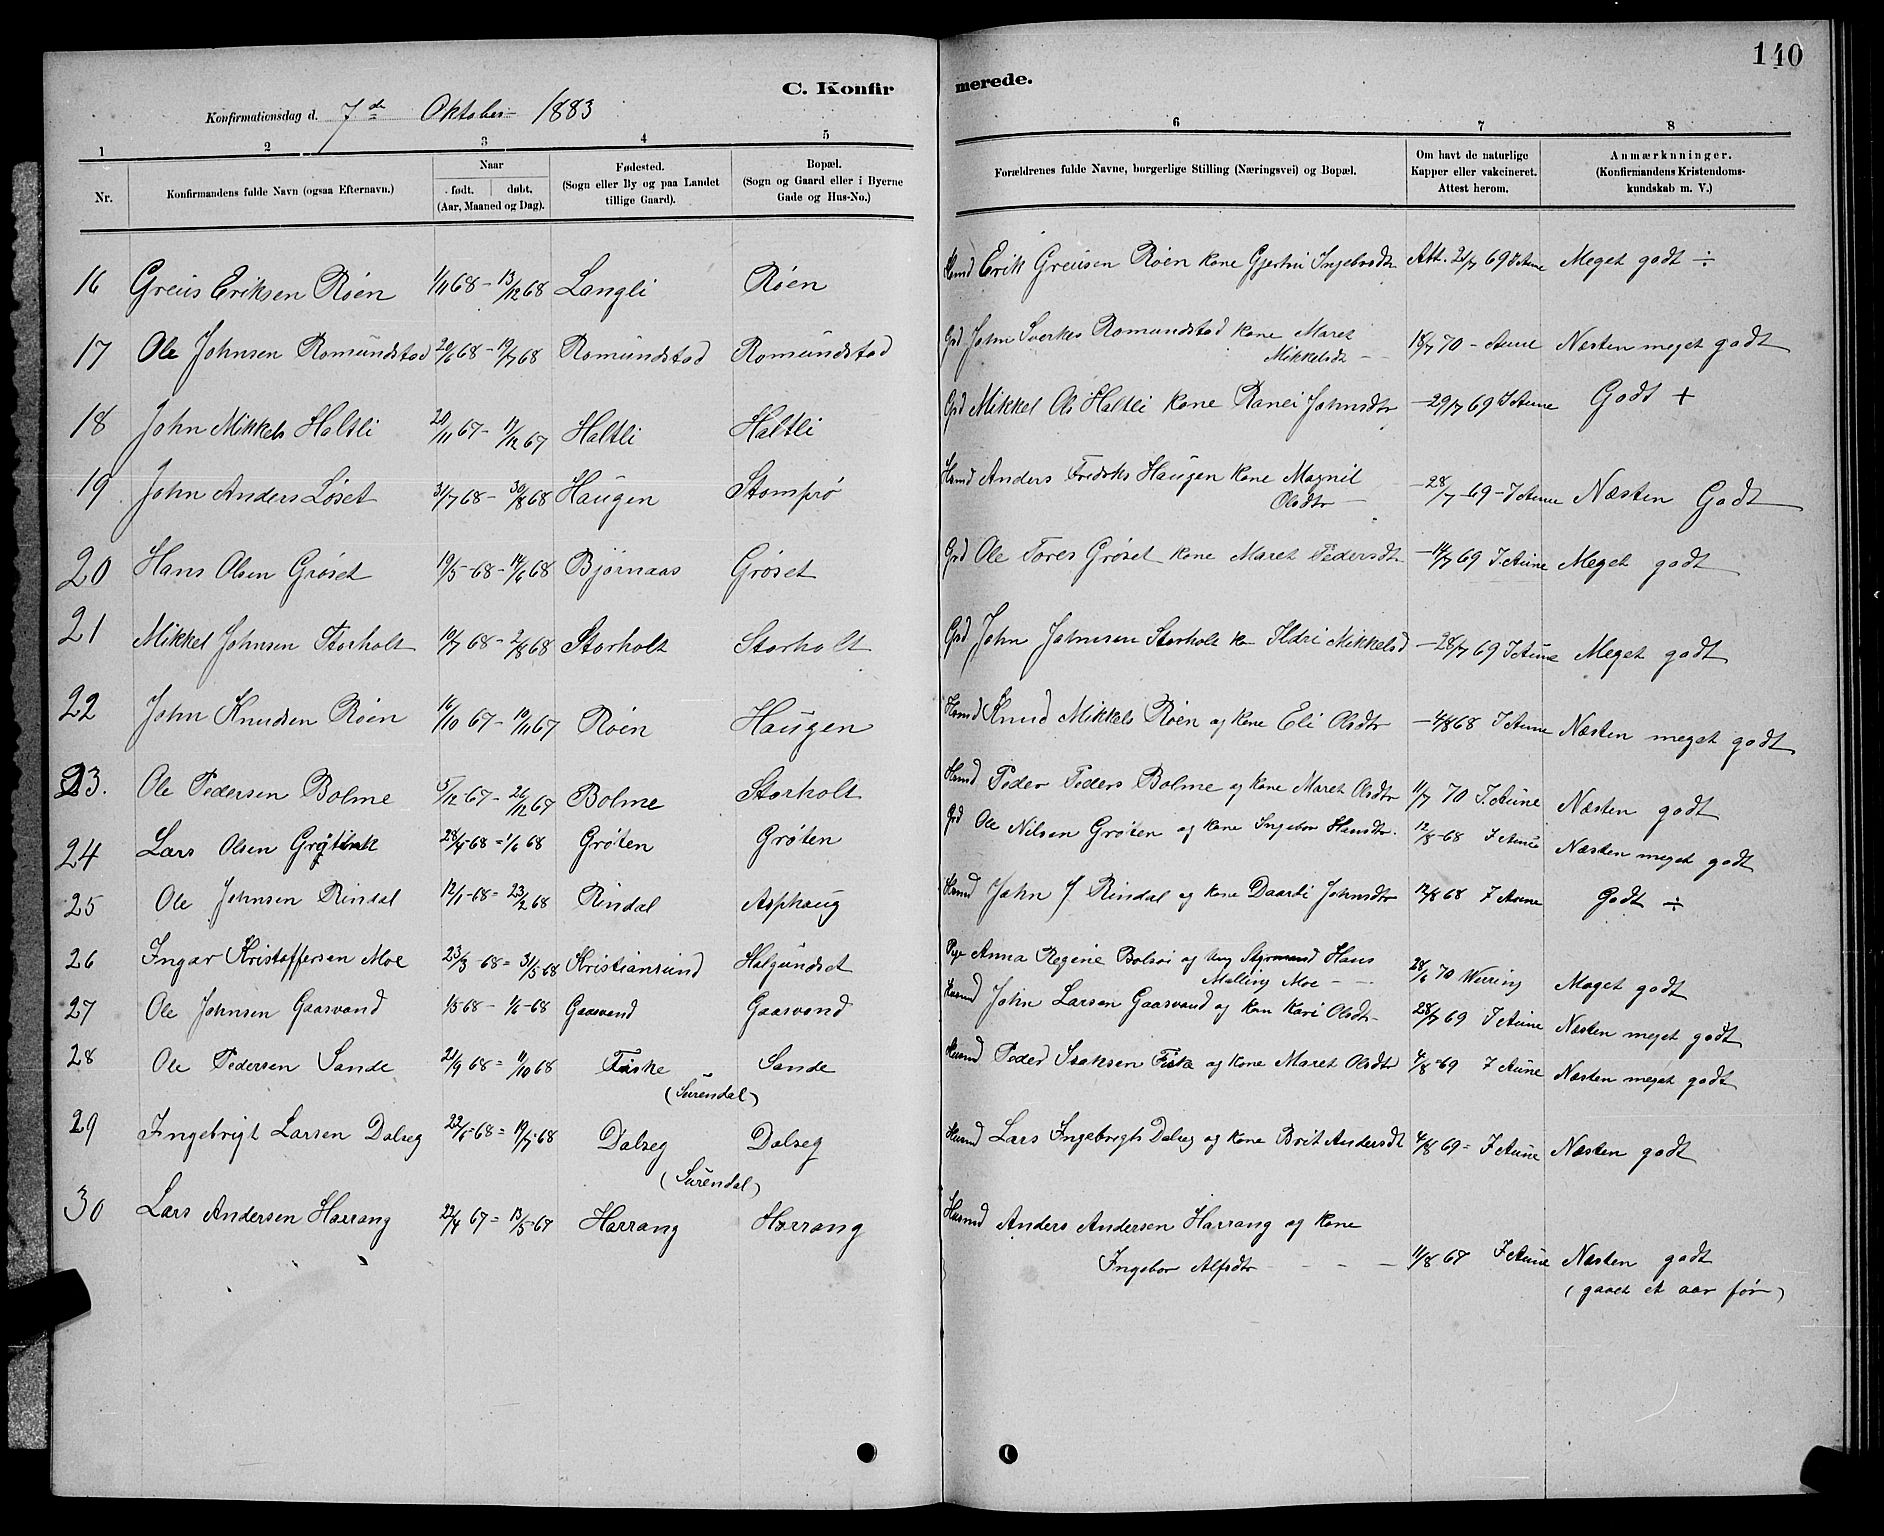 140
C. Konfirmerede.
Konfirmationsdag d. 7de Oktober 1883
1 2 3 4 5 6 7 8
Nr. Konfirmandens fulde Navn (ogsaa Efternavn.) Naar født. døbt. (Aar, Maaned og Dag). Fødested. (Sogn eller By og paa Landet tillige Gaard). Bopæl. (Sogn og Gaard eller i Byerne Gade og Hus-No.) Forældrenes fulde Navne, borgerlige Stilling (Næringsvei) og Bopæl. Om havt de naturlige Kapper eller vakcineret. Attest herom. Anmærkninger. (Konfirmandens Kristendomskundskab m. V.)
16 Greius Eriksen Röen 1/11 68 – 13/12 68 Langli Röen Hmd Erik Greiusen Röen kone Gjertrü Ingebrgdtr Att. 21/7 69 J Aune Meget godt ÷
17 Ole Johnsen Romundstad 20/6 68 – 19/7 68 Romundstad Romundstad Grd John Sverkes Romundstad kone Maret
Mikkelsdt – 18/7 70 – Aune Næsten meget godt
18 John Mikkels Haltli 20/11 67 – 17/12 67 Haltli Haltli Grd Mikkel Ols Haltli kone Ranei Johnsdtr – 29/7 69 J Aune Godt +
19 John Anders Löset 31/7 68 – 30/8 68 Haugen Stomprø Hmd Anders Fredrks Haugen kone Magnil
Olsdtr – 28/7 – 69 – J Aune Næsten Godt
20 Hans Olsen Grøset 19/5 – 68 – 14/6 68 Bjørnaas Grøset Grd Ole Tores Grøset kone Maret Pedersdt – 14/7 69 J. Aune Meget godt
21 Mikkel Johnsen Storholt 10/7 68 – 2/8 68 Storholt Storholt Grd John Johnsen Storholt ko Ildri Mikkelsd – 28/7 69 J Aune Meget godt
22 John Knudsen Röen 16/10 67 – 10/11 67 Röen Haugen Hmd Knud Mikkels Röen og kone Eli Olsdtr – 4/8 68 J Aune Næsten meget godt
23. Ole Pedersen Bolme 5/12 67 – 26/12 67 Bolme Storholt Hmd Peder Peders Bolme og kone Maret Olsdtr 11/7 70 J. Aune Næsten godt
24 Lars Olsen Grøten 28/4 – 68 = 1/6 68 Grøten Grøten Grd Ole Nilsen Grøten og kone Ingebor Hansdtr. 12/8 – 68 J Aune Næsten meget godt
25 Ole Johnsen Rindal 12/1 – 68 = 23/2 68 Rindal Asphaug Hmd John J Rindal og kone Daarti Johnsdtr 12/8 68 J Aune Godt ÷
26 Ingar Kristoffersen Moe 23/3 – 68 = 31/5 – 68 Kristiansund Halgundset Pige Anna Regine Bolsöi og Ung Styrmand Hans
Malling Moe – – 28/6 70 Werring Meget godt
27 Ole Johnsen Gaasvand 1/5 68 – 1/6 – 68 Gaasvand Gaasvand Husmd John Larsen Gaasvand og kone Kari Olsdt – 28/7 69 J Aune Næsten meget godt
28 Ole Pedersen Sande 21/9 68 = 11/10 68 Fiske Sande Husmd Peder Isaksen Fiske og kone Maret Olsdtr 4/8 – 69 J Aune Næsten meget godt
(Surendal)
29 Ingebrigt Larsen Dalseg 22/6 = 68 = 19/7 – 68 Dalseg Dalseg Husmd Lars Ingebrigts Dalseg og kone Brit Andersdt 4/8 69 = J Aune Næsten godt
(Surendal)
30 Lars Andersen Harrang 22/4 67 = 13/5 – 67 Harrang Harrang Husmd Anders Andersen Harrang og kone
Ingebor Alfsdtr – – – – 11/8 67 J Aune Næsten godt
(gaaet et aar før)